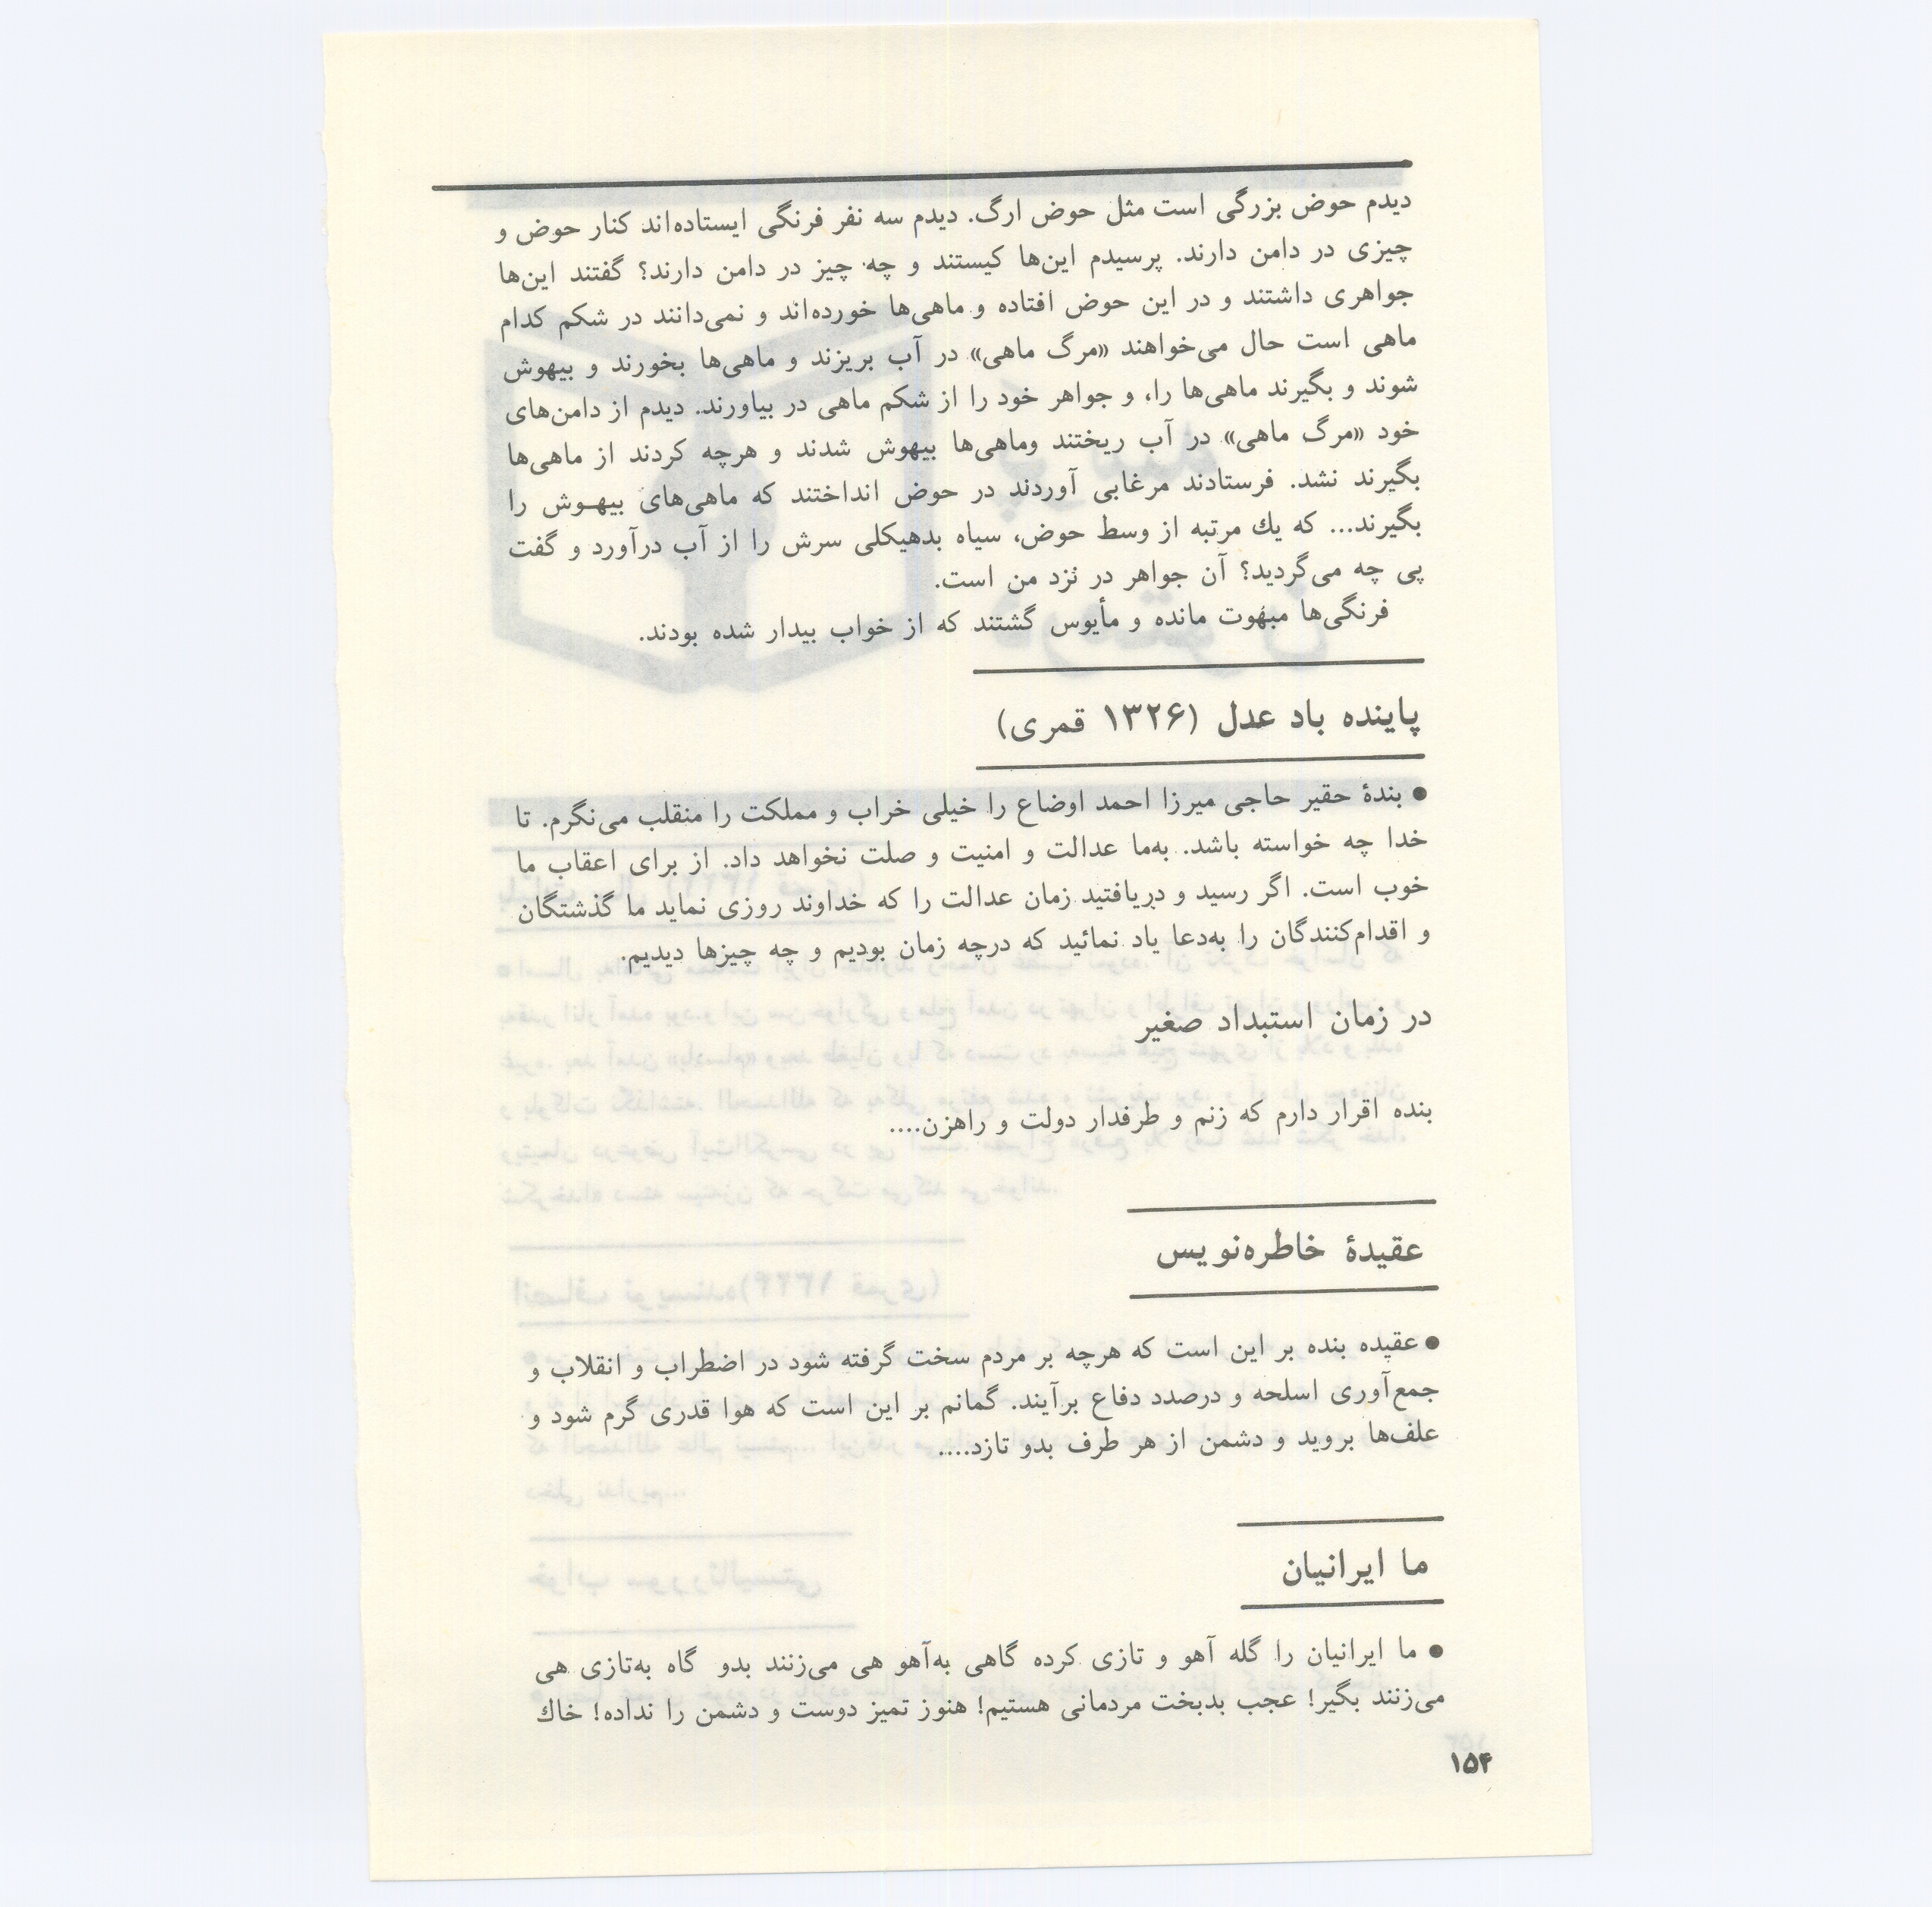 دیدم حوض بزرگی است مثل حوض ارگ. دیدم سه نفر فرنگی ایستاده‌اند کنار حوض و
چیزی در دامن دارند. پرسیدم این‌ها کیستند و چه چیز در دامن دارند؟ گفتند این‌ها
جواهری داشتند و در این حوض افتاده و ماهی‌ها خورده‌اند و نمی‌دانند در شکم کدام
ماهی است حال می‌خواهند «مرگ ماهی» در آب بریزند و ماهی‌ها بخورند و بیهوش
شوند و بگیرند ماهی‌ها را، و جواهر خود را از شکم ماهی در بیاورند. دیدم از دامن‌های
خود «مرگ ماهی» در آب ریختند وماهی‌ها بیهوش شدند و هرچه کردند از ماهی‌ها
بگیرند نشد. فرستادند مرغابی آوردند در حوض انداختند که ماهی‌های بیهـوش را
بگیرند... که یك مرتبه از وسط حوض، سیاه بدهیکلی سرش را از آب درآورد و گفت
پی چه می‌گردید؟ آن جواهر در نزد من است.
فرنگی‌ها مبهوت مانده و مأیوس گشتند که از خواب بیدار شده بودند.
پاینده باد عدل (۱۳۲۶ قمری)
● بندهٔ حقیر حاجی میرزا احمد اوضاع را خیلی خراب و مملکت را منقلب می‌نگرم. تا
خدا چه خواسته باشد. به‌ما عدالت و امنیت و صلت نخواهد داد. از برای اعقاب ما
خوب است. اگر رسید و دریافتید زمان عدالت را که خداوند روزی نماید ما گذشتگان
و اقدام‌کنندگان را به‌دعا یاد نمائید که درچه زمان بودیم و چه چیزها دیدیم.
در زمان استبداد صغیر
بنده اقرار دارم که زنم و طرفدار دولت و راهزن....
عقیدهٔ خاطره‌نویس
● عقیده بنده بر این است که هرچه بر مردم سخت گرفته شود در اضطراب و انقلاب و
جمع‌آوری اسلحه و درصدد دفاع برآیند. گمانم بر این است که هوا قدری گرم شود و
علف‌ها بروید و دشمن از هر طرف بدو تازد....
ما ایرانیان
● ما ایرانیان را گله آهو و تازی کرده گاهی به‌آهو هی می‌زنند بدو گاه به‌تازی هی
می‌زنند بگیر! عجب بدبخت مردمانی هستیم! هنوز تمیز دوست و دشمن را نداده! خاك
۱۵۴